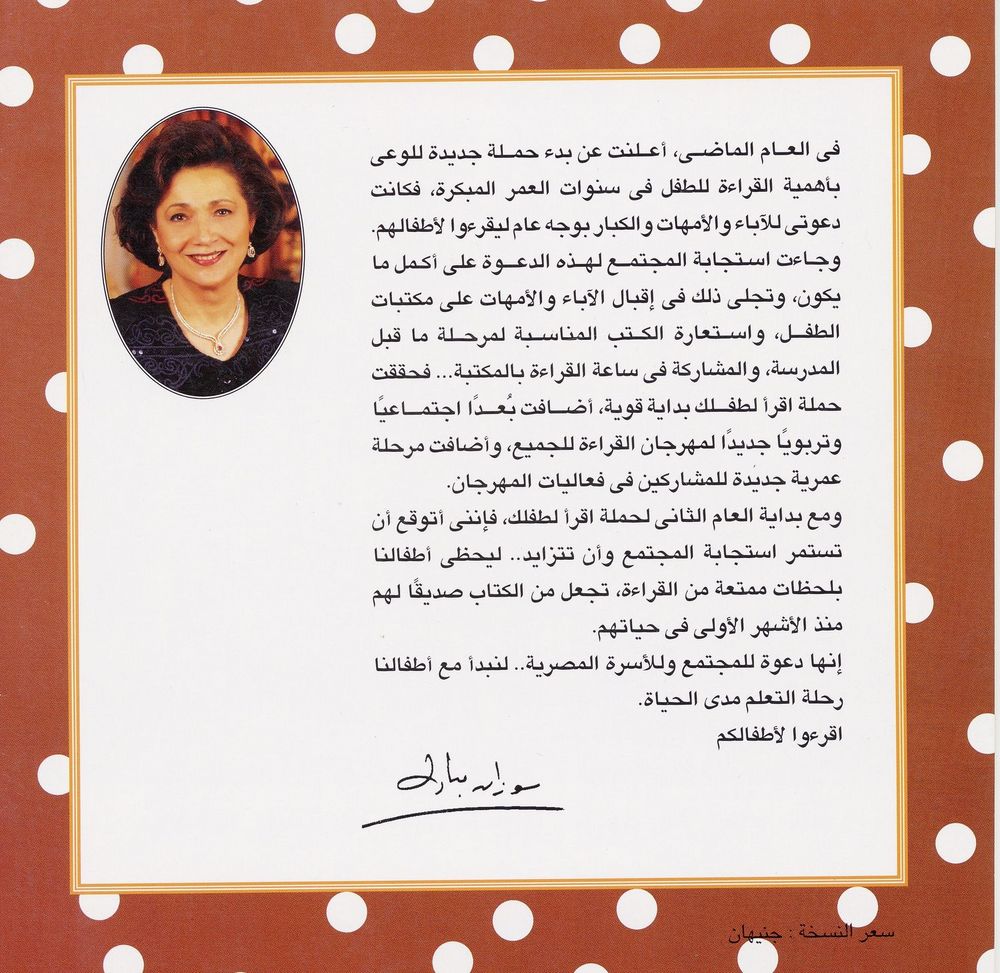 فى العـام الماضـى، أعـلنت عن بدء حمـلة جديدة للوعى
بأهمية القراءة للطفل فى سنوات العمر المبكرة، فكانت
دعوتى للآباء والأمهات والكبار بوجه عام ليقرءوا لأطفالهم.
وجاءت استجابة المجتمـع لهـذه الدعـوة على أكـمل ما
يكون، وتجلى ذلك فى إقبال الآباء والأمهات على مكتبات
الطفـل، واسـتعارة الكتب المناسـبة لمرحلة ما قبل
المدرسة، والمشاركة فى ساعة القراءة بالمكتبة... فحققت
حملة اقرأ لطفـلك بداية قوية، أضـافت بُعـدًا اجتمـاعيًا
وتربويًا جديدًا لمهرجان القراءة للجميع، وأضافت مرحلة
عمرية جديدة للمشاركين فى فعاليات المهرجان.
ومع بداية العام الثانى لحملة اقرأ لطفلك، فإننى أتوقع أن
تستمر استجابة المجتمع وأن تتزايد.. ليحظى أطفالنا
بلحظات ممتعة من القراءة، تجعل من الكتاب صديقًا لهم
منذ الأشهر الأولى فى حياتهم.
إنها دعوة للمجتمع وللأسرة المصرية.. لنبدأ مع أطفالنا
رحلة التعلم مدى الحياة.
اقرءوا لأطفالكم
سوزان مبارك
سعر النسخة : جنيهان